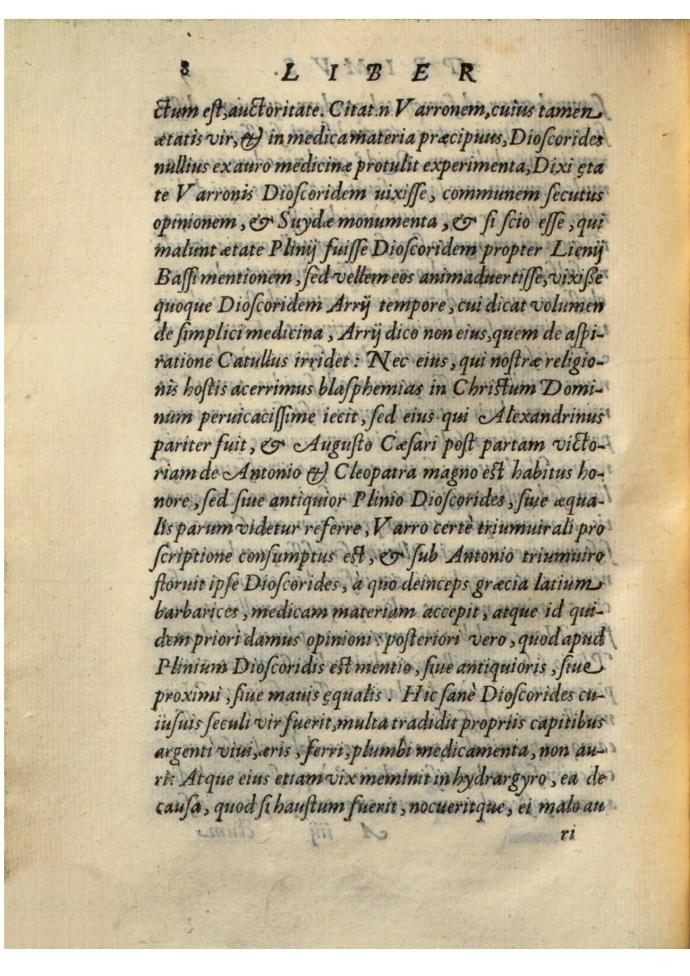 8 LIBER
ctum est, auctoritate. Citat.n Varronem, cuius tamen
ætatis vir, & in medica materia præcipuus, Dioscorides
nullius ex auro medicinæ protulit experimenta, Dixi ęta
te Varronis Dioscoridem uixisse, communem secutus
opinionem, & Suydæ monumenta, & si scio esse, qui
malunt ætate Plinij fuisse Dioscoridem propter Licnij
Bassi mentionem, sed vellem eos animaduertisse, vixiſse
quoque Dioscoridem Arrij tempore, cui dicat volumen
de simplici medicina, Arrij dico non eius, quem de aspi-
ratione Catullus irridet: Nec eius, qui nostræ religio-
nis hostis acerrimus blasphemias in Christum Domi-
num peruicacissime iecit, sed eius qui Alexandrinus
pariter fuit, & Augusto Cæsari post partam victo-
riam de Antonio & Cleopatra magno est habitus ho-
nore, sed siue antiquior Plinio Dioscorides, siue æqua-
lis parum videtur referre, Varro certè triumuirali pro
scriptione consumptus est, & sub Antonio triumuiro
floruit ipse Dioscorides, à quo deinceps græcia latium
barbarices, medicam materiam accepit, atque id qui-
dem priori damus opinioni: posteriori vero, quod apud
Plinium Dioscoridis est mentio, siue antiquioris, siue
proximi, siue mauis ęqualis. Hic sanè Dioscorides cu-
iusuis seculi vir fuerit, multa tradidit propriis capitibus
argenti viui, æris, ferri, plumbi medicamenta, non au-
ri: Atque eius etiam vix meminit in hydrargyro, ea de
causa, quod si haustum fuerit, nocueritque, ei malo au
ri